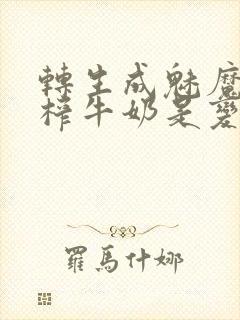 轉生成魅魔
榨牛奶是變
羅馬什娜